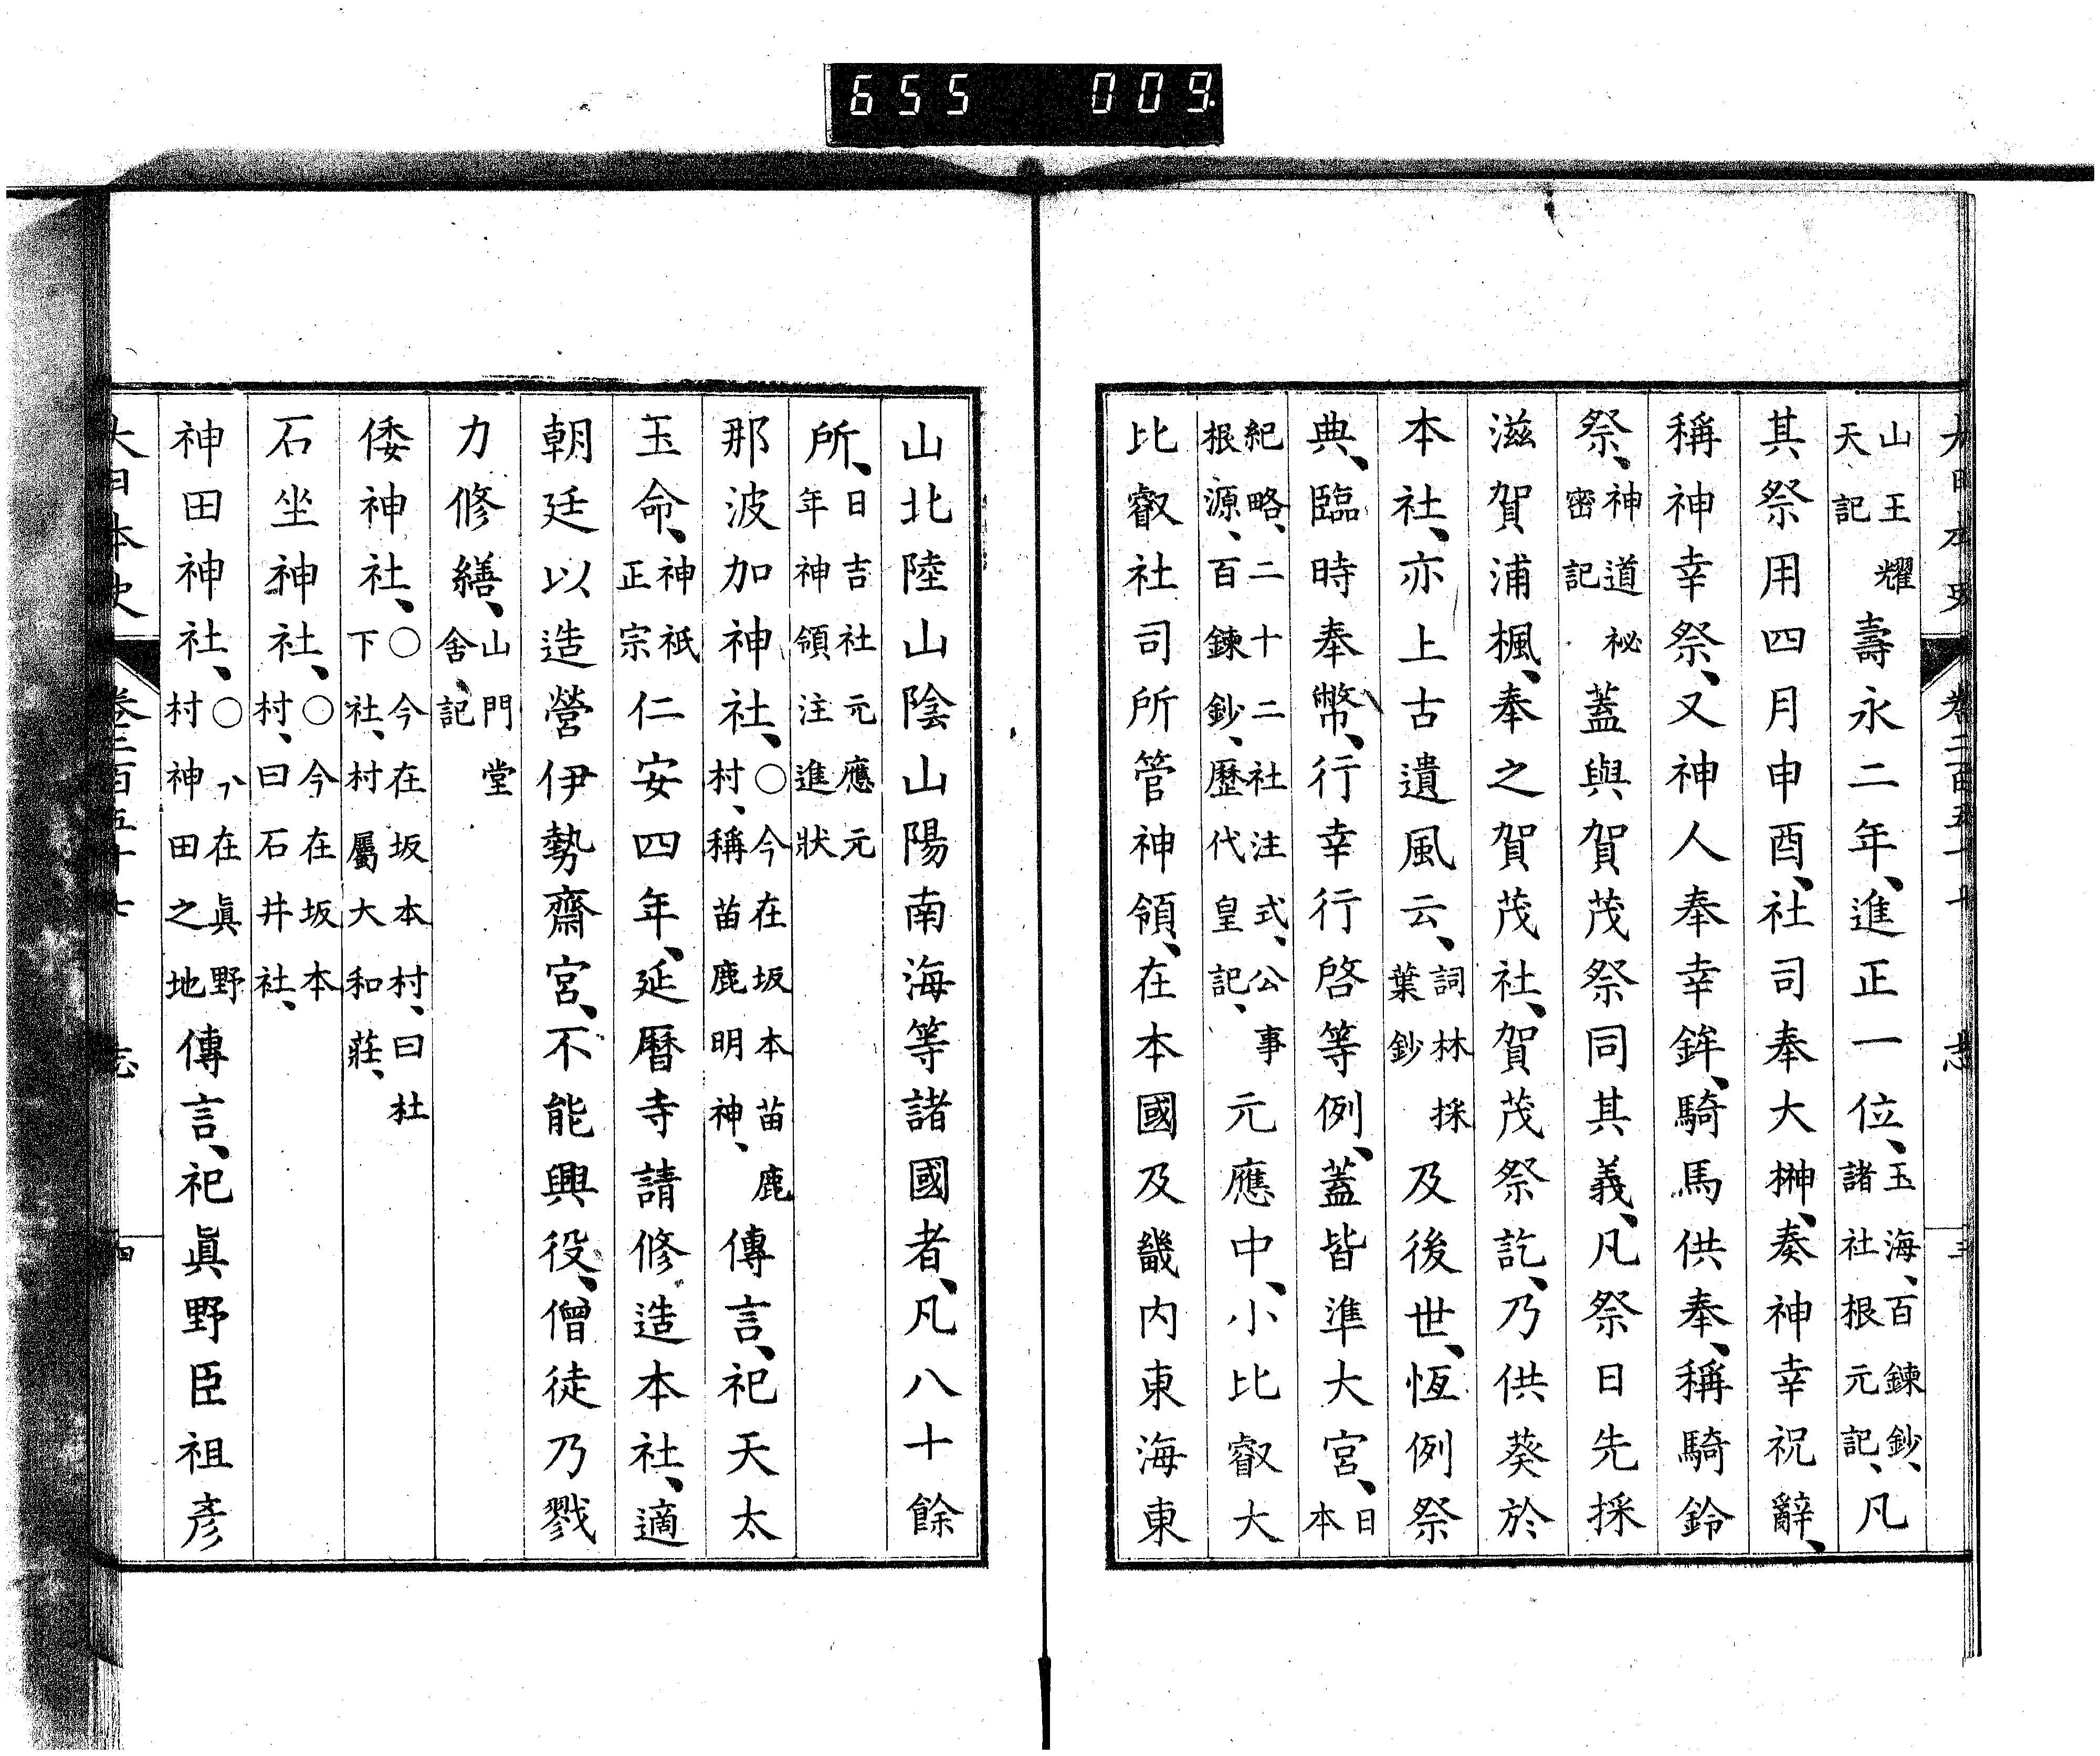 655 009
大日本史 卷二百五十七 志 三
山王耀天記壽永二年、進正一位、玉海、百鍊鈔、諸社根元記、凡
其祭用四月申酉、社司奉大榊、奏神幸祝辭、
稱神幸祭、又神人奉幸鉾、騎馬供奉、稱騎鈴
祭、神道祕密記蓋與賀茂祭同其義、凡祭日先採
滋賀浦楓、奉之賀茂社、賀茂祭訖、乃供葵於
本社、亦上古遺風云、詞林採葉鈔及後世、恆例祭
典、臨時奉幣、行幸行啓等例、蓋皆準大宮、日本
紀略、二十二社注式、公事根源、百鍊鈔、歷代皇記、元應中、小比叡大
比叡社司所管神領、在本國及畿内東海東
山北陸山陰山陽南海等諸國者、凡八十餘
所、日吉社元應元年神領注進狀
那波加神社、○今在坂本苗鹿村、稱苗鹿明神、傳言、祀天太
玉命、神祇正宗仁安四年、延曆寺請修造本社、適
朝廷以造營伊勢齋宮、不能興役、僧徒乃戮
力修繕、山門堂舍、記
倭神社、○今在坂本村、曰杜下社、村屬大和莊、
石坐神社、○今在坂本村、曰石井社、
神田神社、○今在眞野村神田之地傳言、祀眞野臣祖彥
大日本史 卷二百五十七 志 四